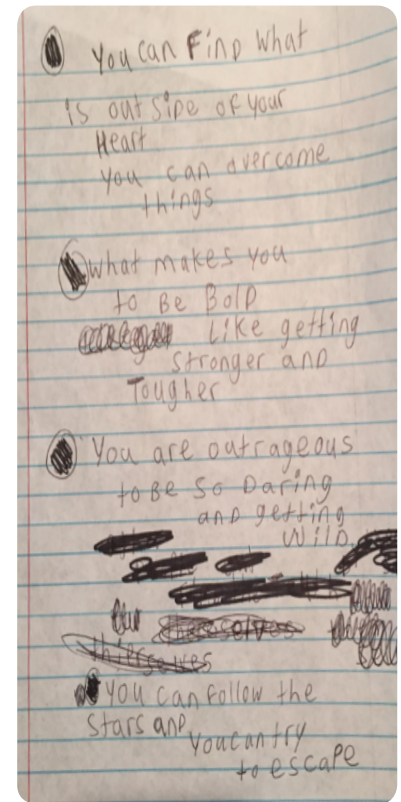 You can Find What
is outside of your
Heart
You can overcome
things
What makes you
to Be Bold
Like getting
Stronger and
Tougher
You are outrageous
to Be so Daring
and getting
Wild
You can follow the
Stars and
You can try
to escape